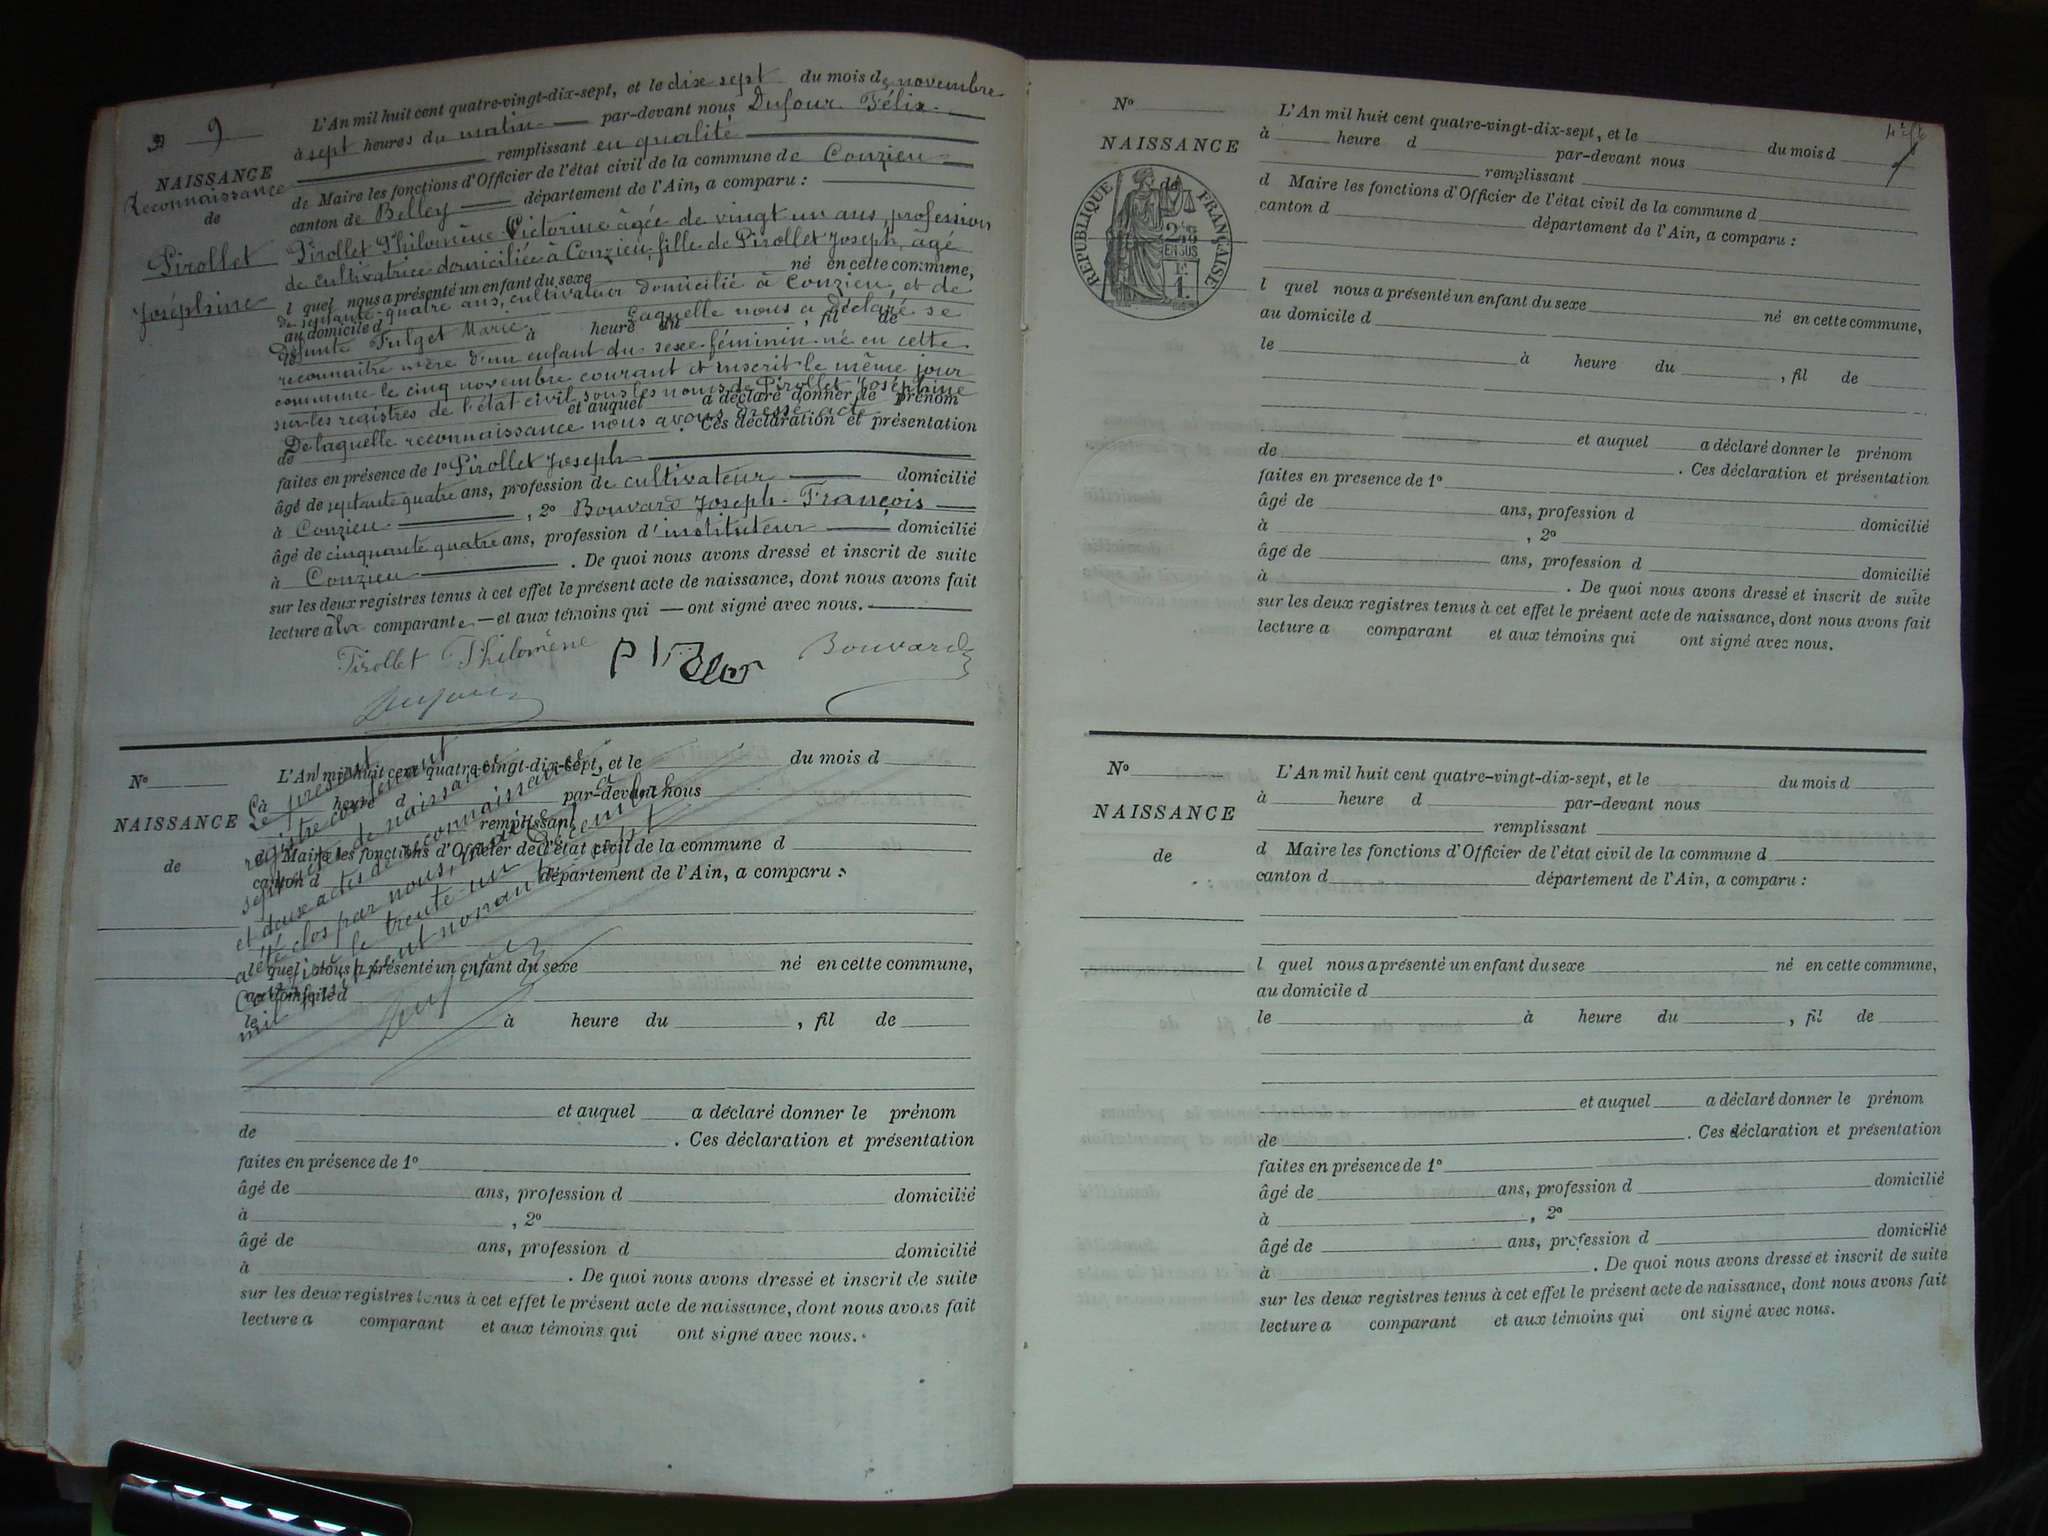 9
NAISSANCE
Reconnaissance
de
Pirollet
Joséphine
L'An mil huit cent quatre-vingt-dix-sept, et le dix sept du mois de novembre
à sept heures du matin par-devant nous Dufour Félix
remplissant en qualité
de Maire les fonctions d'Officier de l'état civil de la commune de Conzieu
canton de Belley département de l'Ain, a comparu :
Pirollet Philomène Victorine âgée de vingt un ans, profession
de cultivatrice domiciliée à Conzieu, fille de Pirollet Joseph, âgé
l quel nous a présenté un enfant du sexe né en cette commune,
de septante-quatre ans, cultivateur domicilié à Conzieu, et de
au domicile d
défunte Fulget Marie. Laquelle nous a déclaré se
à heure du , fil de
reconnaitre mère d'un enfant du sexe féminin né en cette
commune le cinq novembre courant et inscrit le même jour
sur les registres de l'état civil sous les noms de Pirollet Joséphine
et auquel a déclaré donner le prénom
De laquelle reconnaissance nous avons dressé acte
de . Ces déclaration et présentation
faites en présence de 1º Pirollet Joseph
âgé de septante quatre ans, profession de cultivateur domicilié
à Conzieu , 2º Bouvard Joseph-François
âgé de cinquante quatre ans, profession d'instituteur domicilié
à Conzieu . De quoi nous avons dressé et inscrit de suite
sur les deux registres tenus à cet effet le présent acte de naissance, dont nous avons fait
lecture à la comparante et aux témoins qui ont signé avec nous.
Pirollet Philomène Bouvard
Dufour
Nº
NAISSANCE
de
L'An mil huit cent quatre-vingt-dix-sept, et le du mois d
à heure d par-devant nous
remplissant
d Maire les fonctions d'Officier de l'état civil de la commune d
canton d département de l'Ain, a comparu :
l quel nous a présenté un enfant du sexe né en cette commune,
au domicile d
le à heure du , fil de
Le présent
registre contenant
sept actes de naissance
et deux actes de reconnaissance
a été clos par nous, maire de
Conzieu le trente un Décembre
mil huit cent nonante sept
Dufour
et auquel a déclaré donner le prénom
de . Ces déclaration et présentation
faites en présence de 1º
âgé de ans, profession d domicilié
à , 2º
âgé de ans, profession d domicilié
à . De quoi nous avons dressé et inscrit de suite
sur les deux registres tenus à cet effet le présent acte de naissance, dont nous avons fait
lecture a comparant et aux témoins qui ont signé avec nous.
Nº
NAISSANCE
de
RÉPUBLIQUE FRANÇAISE
L'An mil huit cent quatre-vingt-dix-sept, et le du mois d
à heure d par-devant nous
remplissant
d Maire les fonctions d'Officier de l'état civil de la commune d
canton d département de l'Ain, a comparu :
l quel nous a présenté un enfant du sexe né en cette commune,
au domicile d
le à heure du , fil de
et auquel a déclaré donner le prénom
de . Ces déclaration et présentation
faites en présence de 1º
âgé de ans, profession d domicilié
à , 2º
âgé de ans, profession d domicilié
à . De quoi nous avons dressé et inscrit de suite
sur les deux registres tenus à cet effet le présent acte de naissance, dont nous avons fait
lecture a comparant et aux témoins qui ont signé avec nous.
Nº
NAISSANCE
de
L'An mil huit cent quatre-vingt-dix-sept, et le du mois d
à heure d par-devant nous
remplissant
d Maire les fonctions d'Officier de l'état civil de la commune d
canton d département de l'Ain, a comparu :
l quel nous a présenté un enfant du sexe né en cette commune,
au domicile d
le à heure du , fil de
et auquel a déclaré donner le prénom
de . Ces déclaration et présentation
faites en présence de 1º
âgé de ans, profession d domicilié
à , 2º
âgé de ans, profession d domicilié
à . De quoi nous avons dressé et inscrit de suite
sur les deux registres tenus à cet effet le présent acte de naissance, dont nous avons fait
lecture a comparant et aux témoins qui ont signé avec nous.